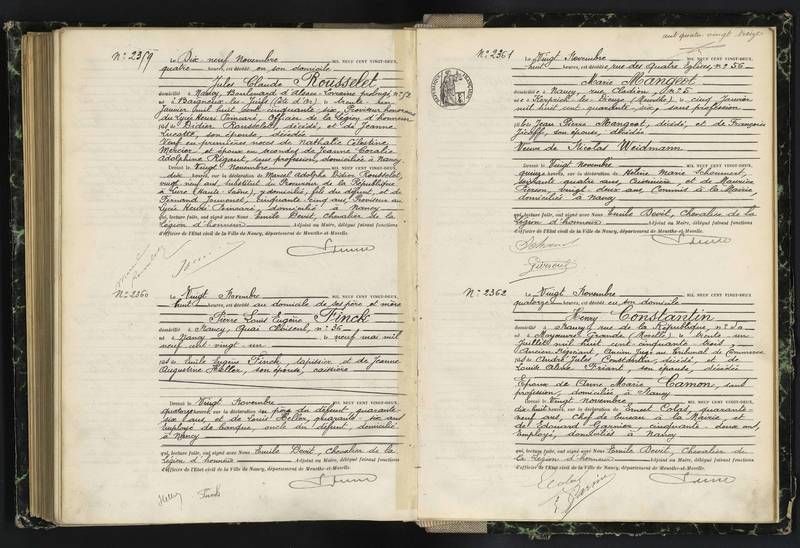 N° 2359
Le Dix neuf Novembre MIL NEUF CENT VINGT-DEUX,
quatre heures, est décédé en son domicile
Jules Claude Rousselet
domicilié à Nancy, Boulevard d'Alsace-Lorraine prolongé n° 52
né à Baigneux les Juifs (Côte d'Or) le trente un
Janvier mil huit cent cinquante six, Proviseur honoraire
du Lycée Henri Poincaré, Officier de la Légion d'honneur
fils de Didier Rousselet, décédé, et de Jeanne
Lucotte, son épouse, décédée
Veuf en premières noces de Nathalie Célestine
Mercier et époux en secondes de Jeanne Coralie
Adolphine Rigaut, sans profession, domiciliée à Nancy
Dressé le Vingt Novembre MIL NEUF CENT VINGT-DEUX,
dix heures, sur la déclaration de Marcel Adolphe Didier Rousselet,
vingt neuf ans, substitut du Procureur de la République
à Lure (Haute-Saône), y domicilié, fils du défunt, et de
Fernand Jouvenet, cinquante-cinq ans, Proviseur au
Lycée Henri Poincaré, domicilié à Nancy
qui, lecture faite, ont signé avec Nous Emile Devit, Chevalier de la
Légion d'honneur Adjoint au Maire, délégué faisant fonctions
d'officier de l'Etat civil de la Ville de Nancy, département de Meurthe-et-Moselle.
N° 2360
Le Vingt Novembre MIL NEUF CENT VINGT-DEUX,
huit heures, est décédé au domicile de ses père et mère
Pierre Louis Eugène Finck
domicilié à Nancy, Quai Choiseul, n° 36
né à Nancy le neuf mai mil
neuf cent vingt un
fils de Emile Eugène Finck, tapissier et de Jeanne
Augustine Heller, son épouse, caissière
Dressé le Vingt Novembre MIL NEUF CENT VINGT-DEUX,
quatorze heures, sur la déclaration du père du défunt, quarante
six ans, et de Louis Heller, quarante-six ans
employé de banque, oncle du défunt, domicilié
à Nancy
qui, lecture faite, ont signé avec Nous Emile Devit, Chevalier de la
Légion d'honneur Adjoint au Maire, délégué faisant fonctions
d'officier de l'Etat civil de la Ville de Nancy, département de Meurthe-et-Moselle.
Heller Finck
cent quatre vingt treize
N° 2361
Le Vingt Novembre MIL NEUF CENT VINGT-DEUX,
huit heures, est décédée rue des Quatre Eglises, n° 56
Marie Mangeot
domiciliée à Nancy, rue Clodion, n° 5
née à le cinq Janvier
mil huit cent quarante six, sans profession
fille de Jean Pierre Mangeot, décédé, et de Françoise
son épouse, décédée
Veuve de Nicolas Weidmann
Dressé le Vingt Novembre MIL NEUF CENT VINGT-DEUX,
quinze heures, sur la déclaration de Hélène Marie
soixante quatre ans, et de Maurice
Pierson, vingt deux ans, Commis à la Mairie
domiciliés à Nancy
qui, lecture faite, ont signé avec Nous Emile Devit, Chevalier de la
Légion d'honneur Adjoint au Maire, délégué faisant fonctions
d'officier de l'Etat civil de la Ville de Nancy, département de Meurthe-et-Moselle.
N° 2362
Le Vingt Novembre MIL NEUF CENT VINGT-DEUX,
quatorze heures, est décédé en son domicile
Henry Constantin
domicilié à Nancy, rue de la République, n°
né à Moyeuvre Grande (Moselle) le trente-un
Juillet mil huit cent cinquante-trois,
Ancien Négociant, Ancien Juge au Tribunal de Commerce
fils de André Jules Constantin, décédé, et de
Louise son épouse, décédée
Epoux de Anne Marie Camon, sans
profession, domiciliée à Nancy
Dressé le Vingt Novembre MIL NEUF CENT VINGT-DEUX,
dix-huit heures, sur la déclaration de Ernest Colat, quarante-
neuf ans, Chef de bureau à la Mairie, et
de Edouard Garnier, cinquante-deux ans,
Employé, domiciliés à Nancy
qui, lecture faite, ont signé avec Nous Emile Devit, Chevalier de
la Légion d'honneur Adjoint au Maire, délégué faisant fonctions
d'officier de l'Etat civil de la Ville de Nancy, département de Meurthe-et-Moselle.
Colat
E. Garnier